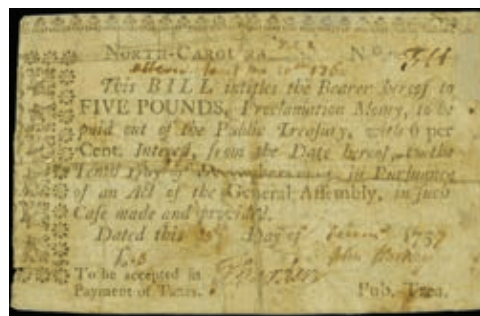 NORTH-CAROLINA No.
This BILL intitles the Bearer hereof to
FIVE POUNDS, Proclamation Money, to be
paid out of the Public Treasury, with 6 per
Cent. Interest, from the Date hereof, to the
Tenth Day of in Pursuance
of an Act of the General Assembly, in such
Case made and provided.
Dated this Day of 1757
To be accepted in
Payment of Taxes. Pub. Trea.